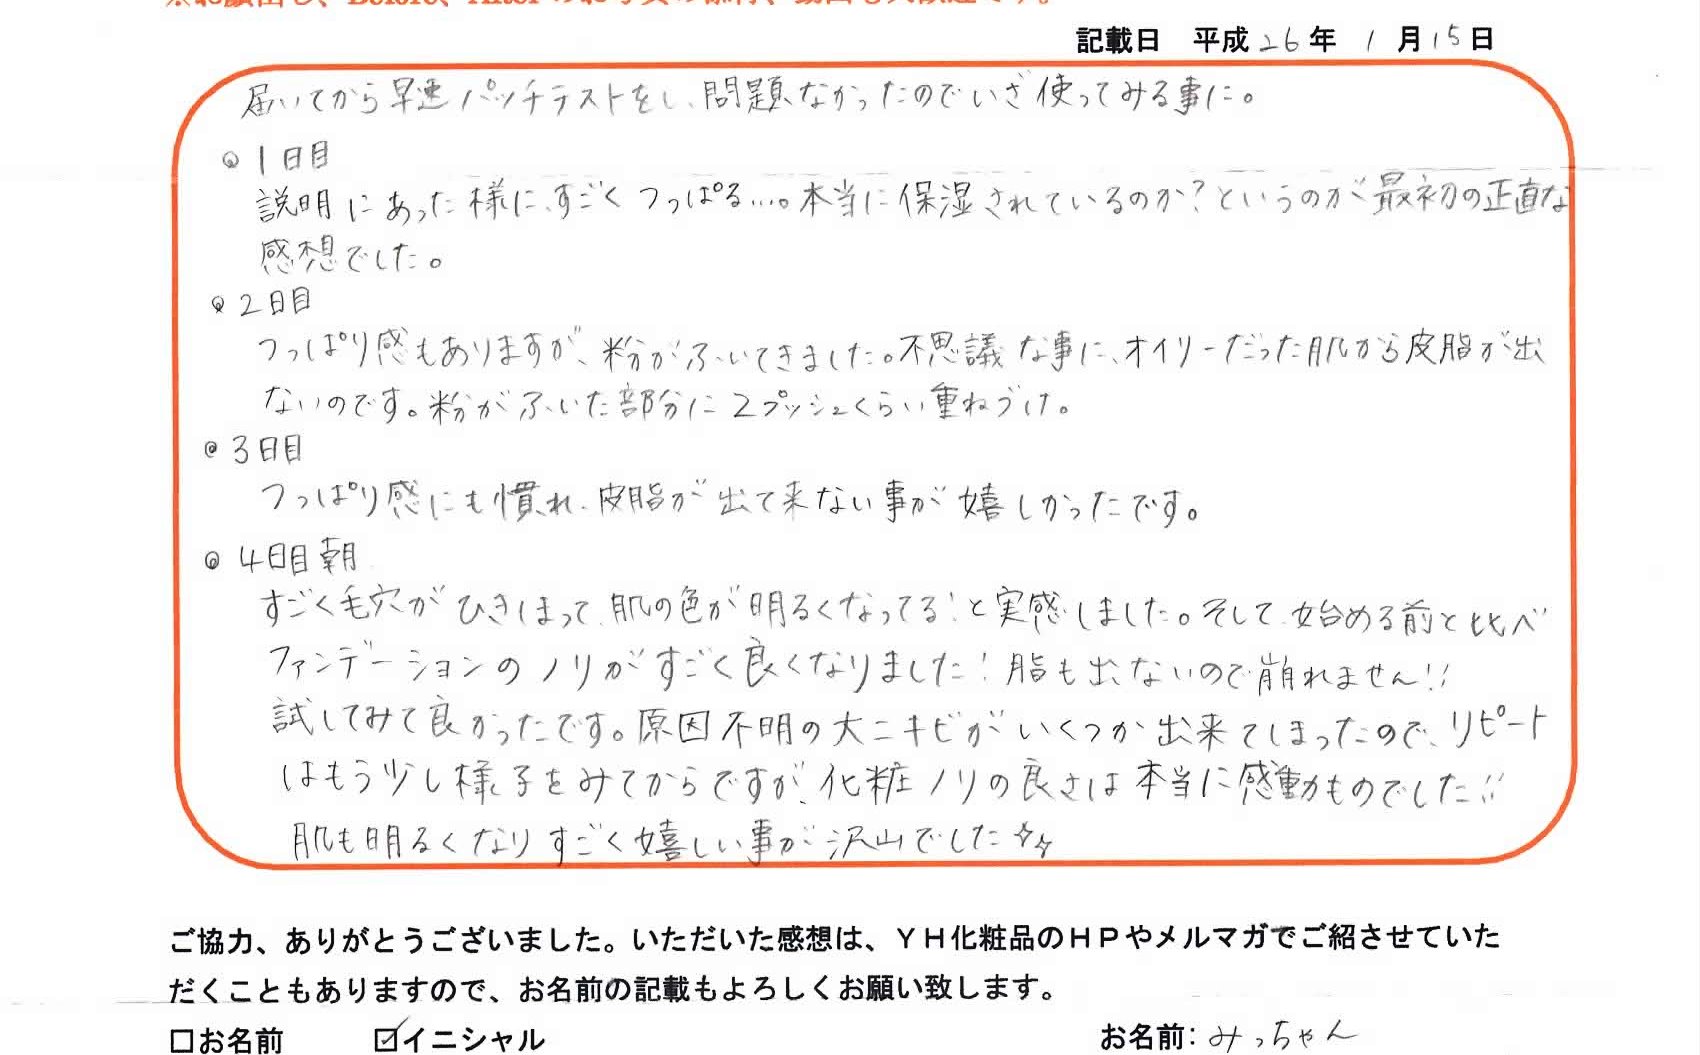 記載日 平成26年 1月15日
届いてから早速パッチテストをし、問題なかったのでいざ使ってみる事に。
◎1日目
説明にあった様に、すごくつっぱる…。本当に保湿されているのか?というのが最初の正直な
感想でした。
◎2日目
つっぱり感もありますが、粉がふいてきました。不思議な事に、オイリーだった肌から皮脂が出
ないのです。粉がふいた部分に2プッシュくらい重ねづけ。
◎3日目
つっぱり感にも慣れ、皮脂が出て来ない事が嬉しかったです。
◎4日目朝
すごく毛穴がひきしまって、肌の色が明るくなってる!と実感しました。そして、始める前と比べ
ファンデーションのノリがすごく良くなりました!脂も出ないので崩れません!!
試してみて良かったです。原因不明の大ニキビがいくつか出来てしまったので、リピート
はもう少し様子をみてからですが、化粧ノリの良さは本当に感動ものでした!!
肌も明るくなりすごく嬉しい事が沢山でした☆☆
ご協力、ありがとうございました。いただいた感想は、YH化粧品のHPやメルマガでご紹させていた
だくこともありますので、お名前の記載もよろしくお願い致します。
□お名前 ☑イニシャル お名前:みっちゃん